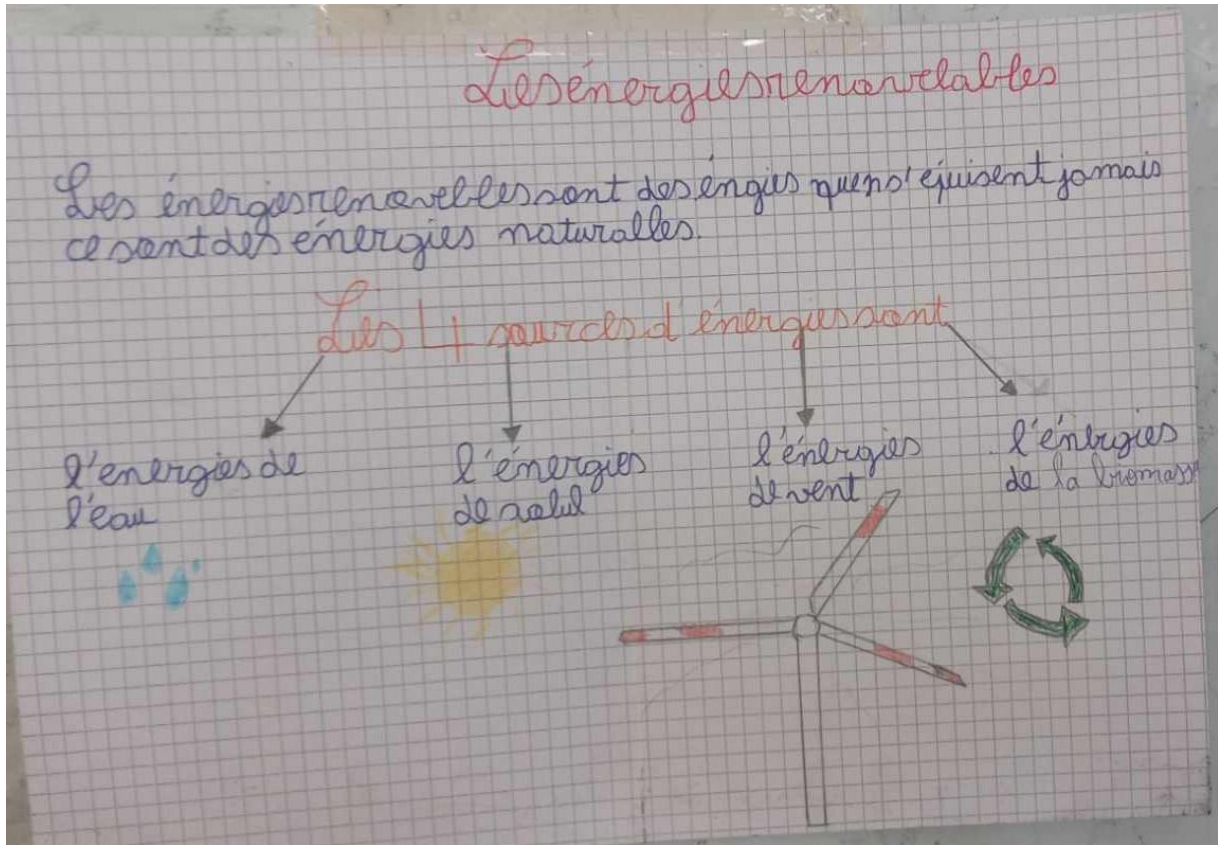 Les énergies renouvelables
Les énergies renouvelles sont des engies que n'éjuisent jamais
ce sont des énergies naturalles.
Les 4 sources d'énergies sont
l'energies de
l'eau
l'énergies
de soleil
l'énergies
de vent
l'énergies
de la biomass